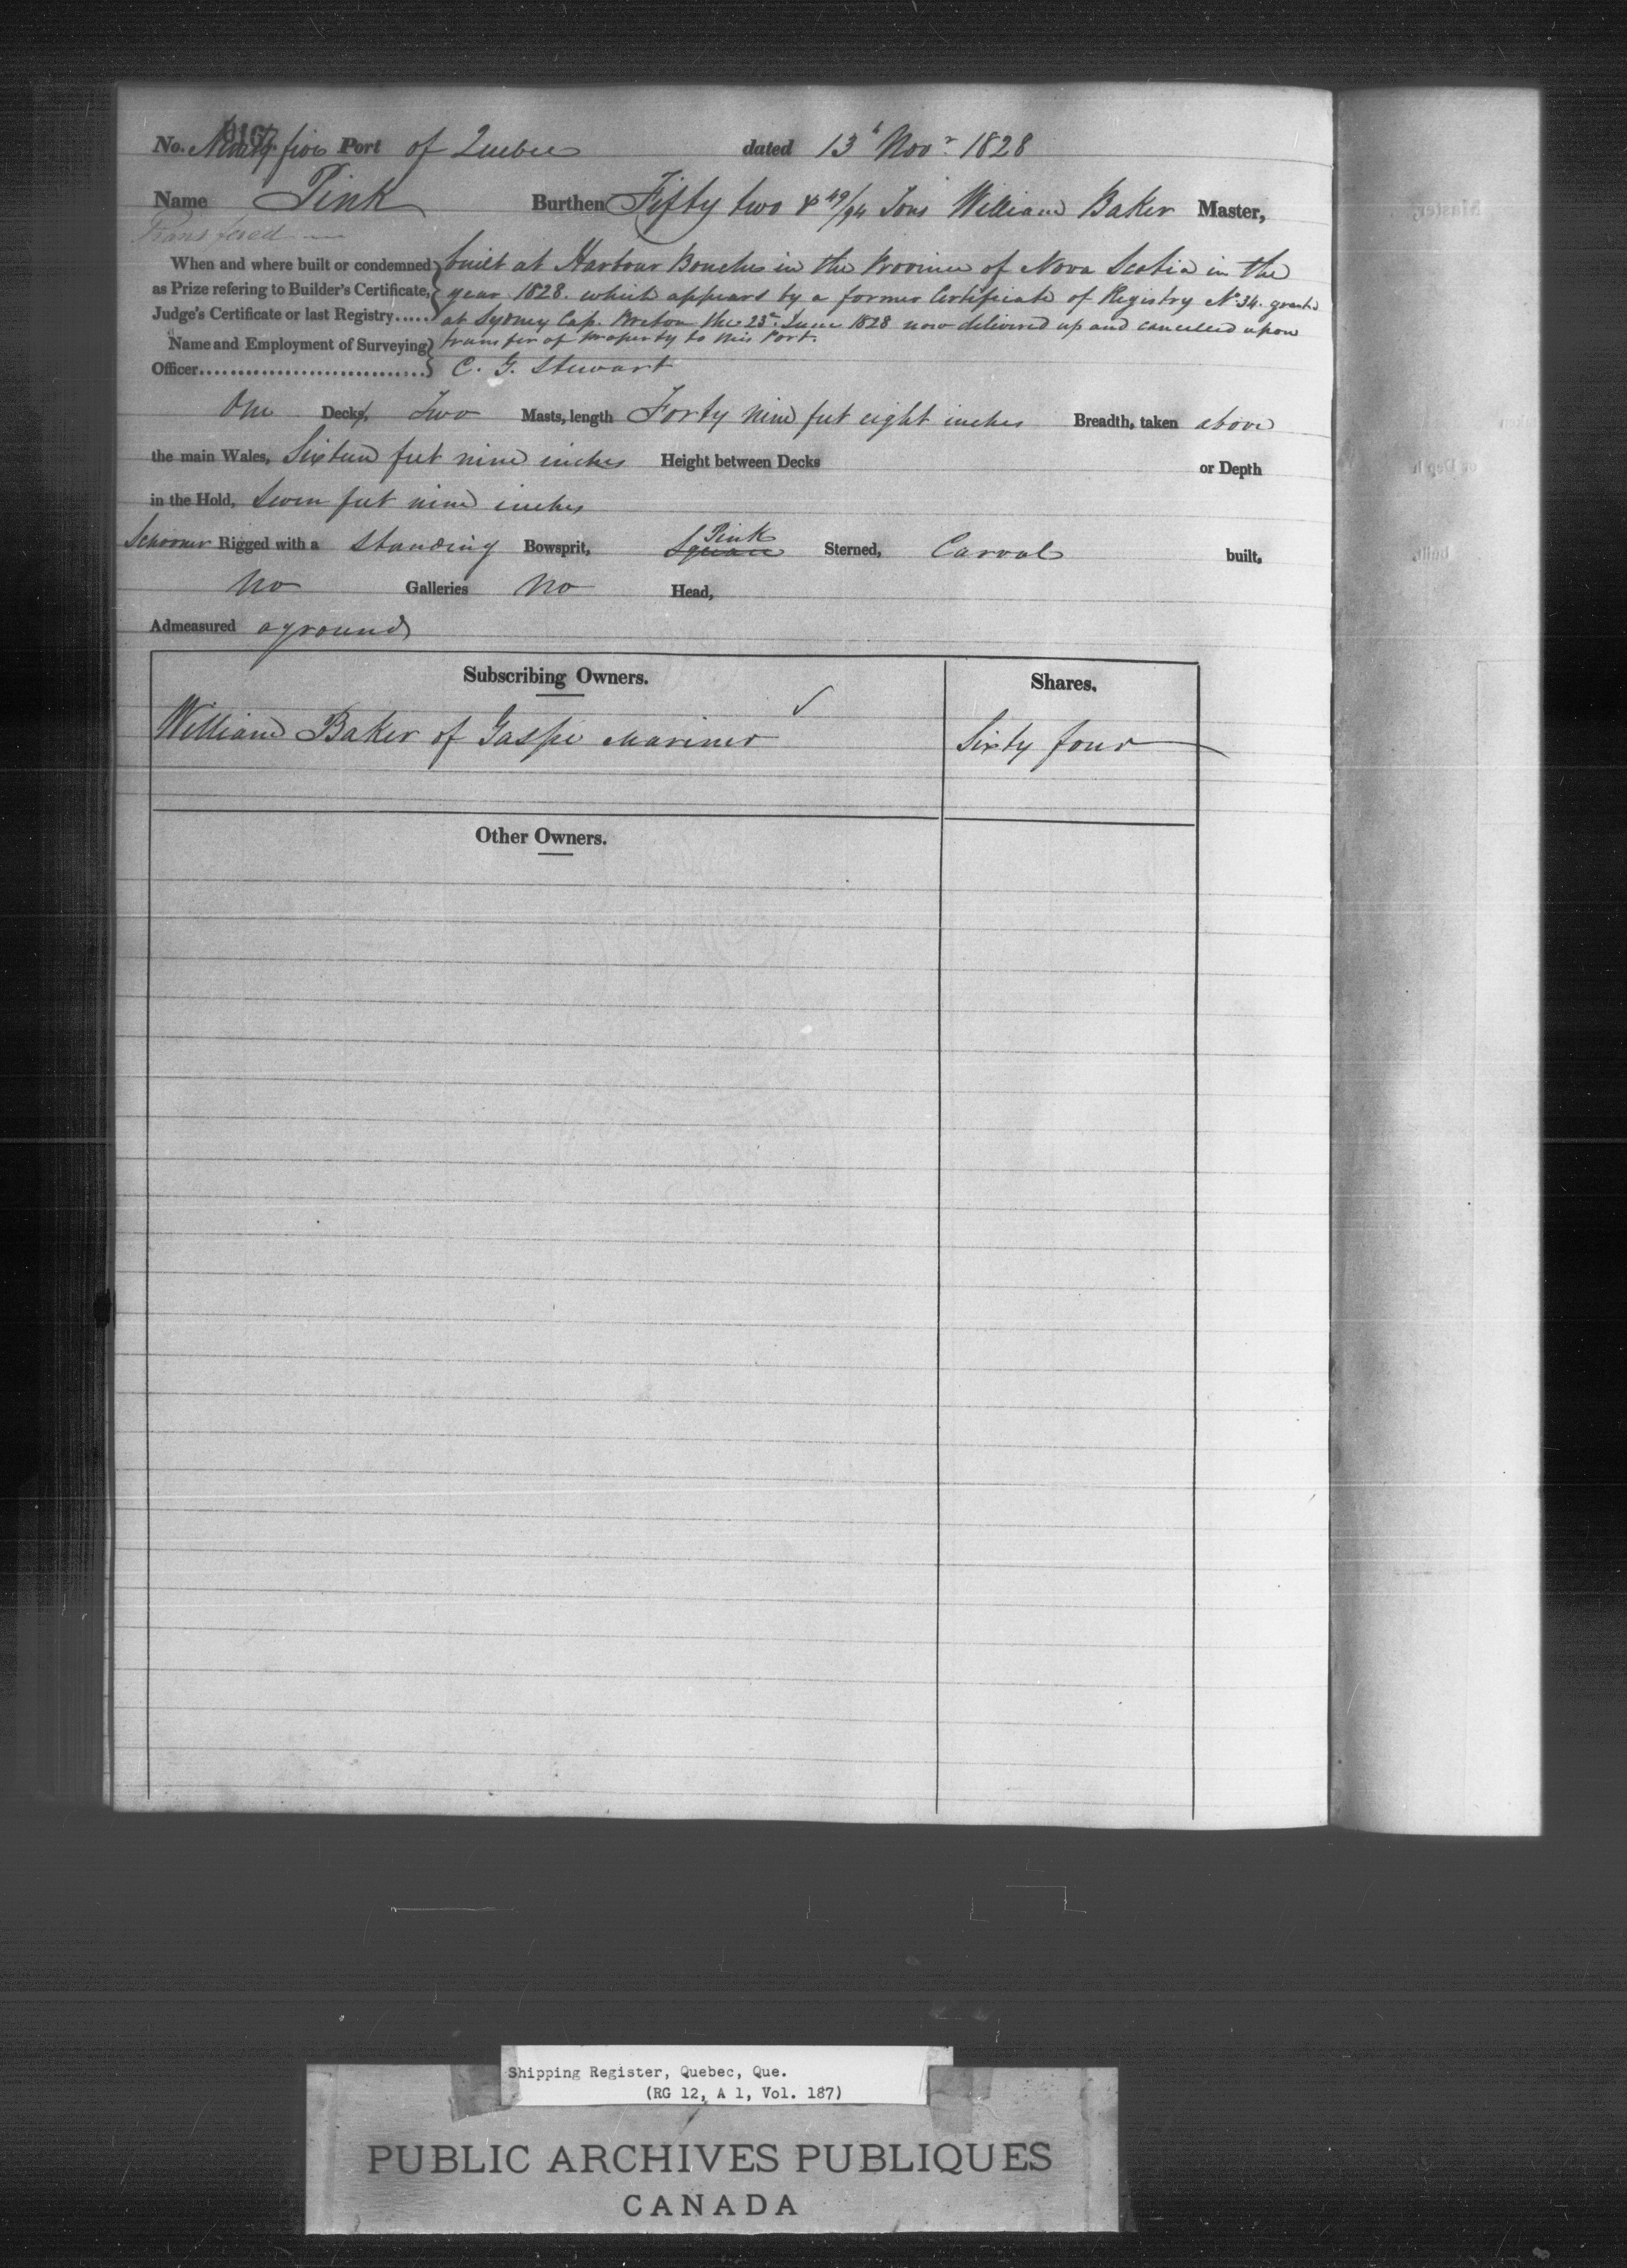 No. Ninety five Port of Quebec dated 13th Novr. 1828
Name Pink Burthen Fifty two & 49/94 Tons William Baker Master,
Transfered
When and where built or condemned as Prize refering to Builder's Certificate, Judge's Certificate or last Registry..... built at Harbour Bouches in the Province of Nova Scotia in the
year 1828. which appears by a former Certificate of Registry No 34. granted
at Sydney Cap. Breton the 23d. June 1828 now delivered up and cancelled upon
transfer of property to this Port.
Name and Employment of Surveying Officer............................ C. G. Stewart
One Decks, Two Masts, length Forty nine feet eight inches Breadth, taken above
the main Wales, Sixteen feet nine inches Height between Decks or Depth
in the Hold, Seven feet nine inches
Schooner Rigged with a standing Bowsprit, Square Pink Sterned, Carvel built,
No Galleries No Head,
Admeasured aground
Subscribing Owners. Shares.
William Baker of Gaspé Mariner Sixty four
Other Owners.
Shipping Register, Quebec, Que.
(RG 12, A 1, Vol. 187)
PUBLIC ARCHIVES PUBLIQUES
CANADA